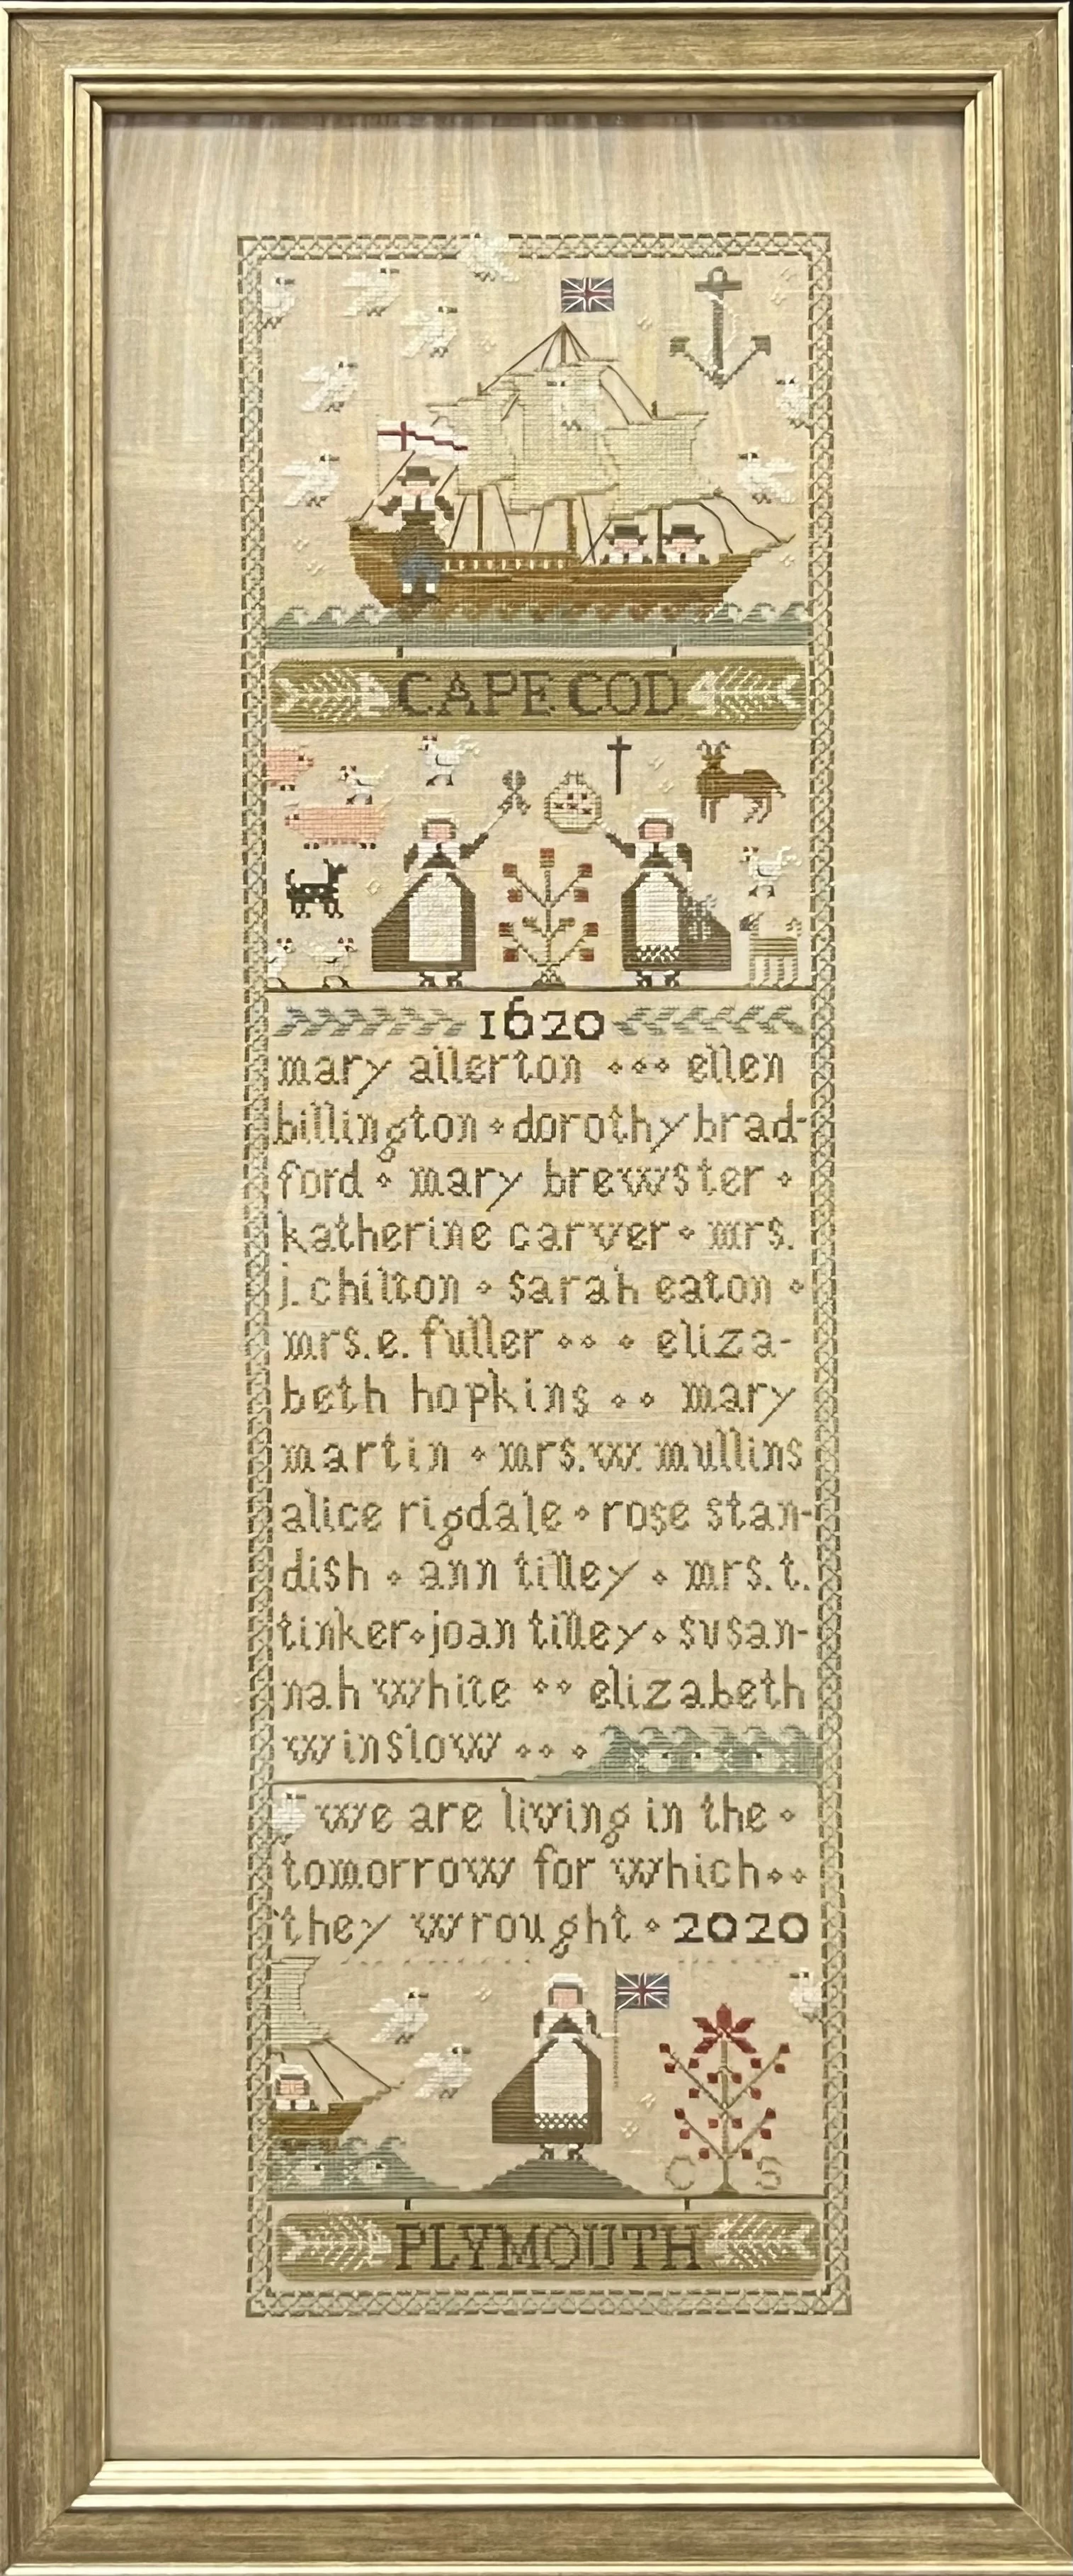 CAPE COD
1620
mary allerton ⋄⋄⋄ ellen
billington⋄dorothy brad-
ford ⋄ mary brewster ⋄
katherine carver⋄ mrs.
j. chilton ⋄ sarah eaton ⋄
mrs. e. fuller ⋄⋄ ⋄ eliza-
beth hopkins ⋄⋄ mary
martin ⋄ mrs. w. mullins
alice rigdale ⋄ rose stan-
dish ⋄ ann tilley ⋄ mrs. t.
tinker⋄joan tilley⋄ susan-
nah white ⋄⋄ elizabeth
winslow ⋄⋄⋄
we are living in the ⋄
tomorrow for which⋄⋄
they wrought ⋄ 2020
C S
PLYMOUTH